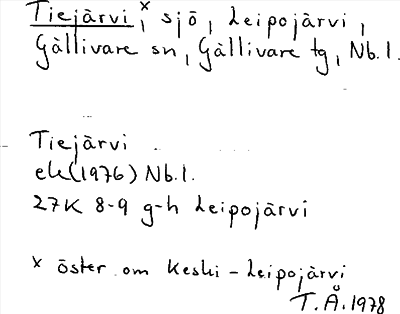 Tiejärvi,ˣ sjö, Leipojärvi,
Gällivare sn, Gällivare tg, Nb.l.
Tiejärvi
ek(1976) Nb.l.
27K 8-9 g-h Leipojärvi
x öster om Keski-Leipojärvi
T.Å.1978